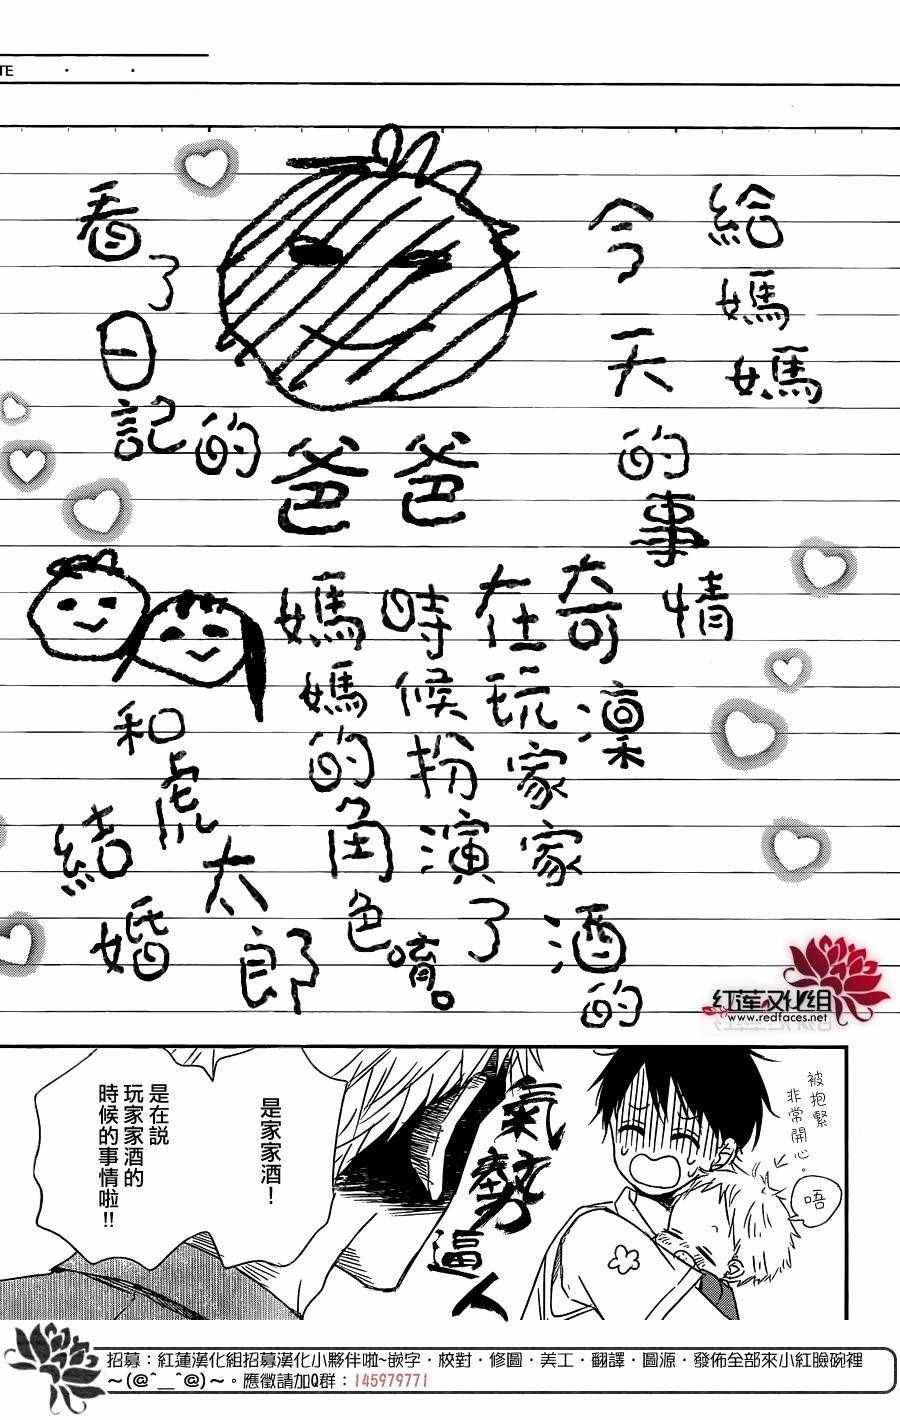 TE
給媽媽
今天的事情
奇凜
在玩家家酒的
時候扮演了
媽媽的角色唷。
看了日記的
爸爸
和虎太郎
結婚
紅蓮漢化組
www.redfaces.net
被抱緊
非常開心。
唔
氣勢逼人
是家家酒!
是在說
玩家家酒的
時候的事情啦!!
招募:紅蓮漢化組招募漢化小夥伴啦~嵌字·校對·修圖·美工·翻譯·圖源·發佈全部來小紅臉碗裡
~(@^__^@)~。應徵請加Q群:145979771